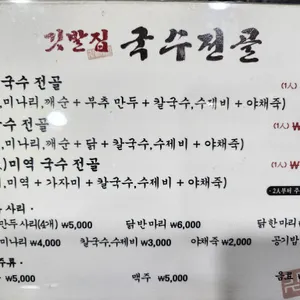 깃발집 국수전골
국수 전골 (1人)
,미나리,깨순 + 부추 만두 + 칼국수,수제비 + 야채죽)
수 전골 (1人) ₩
,미나리,깨순 + 닭 + 칼국수,수제비 + 야채죽)
)미역 국수 전골 (1人) ₩
,미역 + 가자미 + 칼국수,수제비 + 야채죽)
2人부터 주
사리
만두사리(4개) ₩5,000 닭 반 마리 ₩6,000 닭 한 마리
미나리 ₩4,000 칼국수,수제비 ₩3,000 야채죽 ₩2,000 공기밥
주류
₩5,000 맥주 ₩5,000 음료